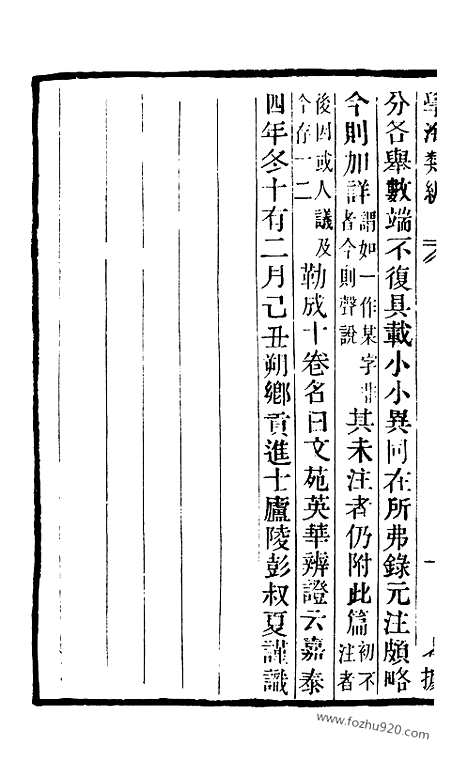 學海類編
分各舉數端不復具載小小異同在所弗錄元注頗略
今則加詳謂如一作某字非者今則聲說其未注者仍附此篇初不注者
後因或人議及今存一二勒成十卷名曰文苑英華辨證云嘉泰
四年冬十有二月己丑朔鄉貢進士廬陵彭叔夏謹識
www.fozhu920.com